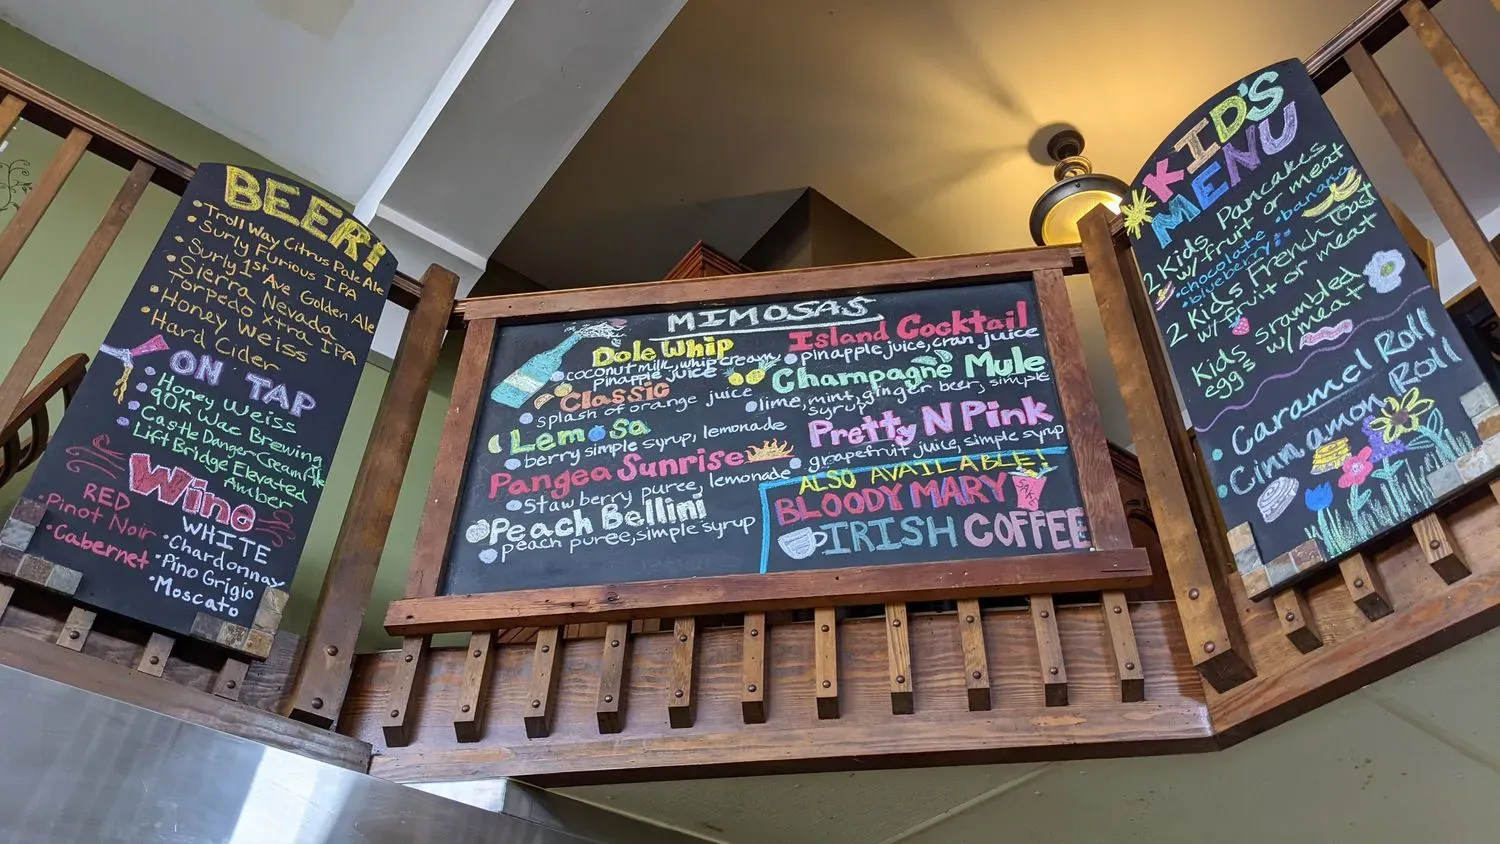 BEER!
• Troll Way Citrus Pale Ale
• Surly Furious IPA
• Surly 1st Ave Golden Ale
• Sierra Nevada
Torpedo Xtra IPA
• Honey Weiss
• Hard Cider
ON TAP
• Honey Weiss
• 90K Wac Brewing
• Castle Danger-Cream Ale
• Lift Bridge Elevated
Amber
Wino
RED
• Pinot Noir
• Cabernet
WHITE
• Chardonnay
• Pino Grigio
• Moscato
MIMOSAS
Dole Whip
coconut milk, whip cream,
pineapple juice
Classic
splash of orange juice
Lemosa
berry simple syrup, lemonade
Pangea Sunrise
Stawberry puree, lemonade
Peach Bellini
peach puree, simple syrup
Island Cocktail
pineapple juice, cran juice
Champagne Mule
lime, mint, ginger beer, simple
syrup
Pretty N Pink
grapefruit juice, simple syrup
ALSO AVAILABLE!
BLOODY MARY
IRISH COFFEE
KID'S
MENU
2 Kids Pancakes
w/ fruit or meat
• chocolate • banana
• blueberry
2 Kids French Toast
w/ fruit or meat
Kids srambled
eggs w/ meat
• Caramel Roll
• Cinnamon Roll